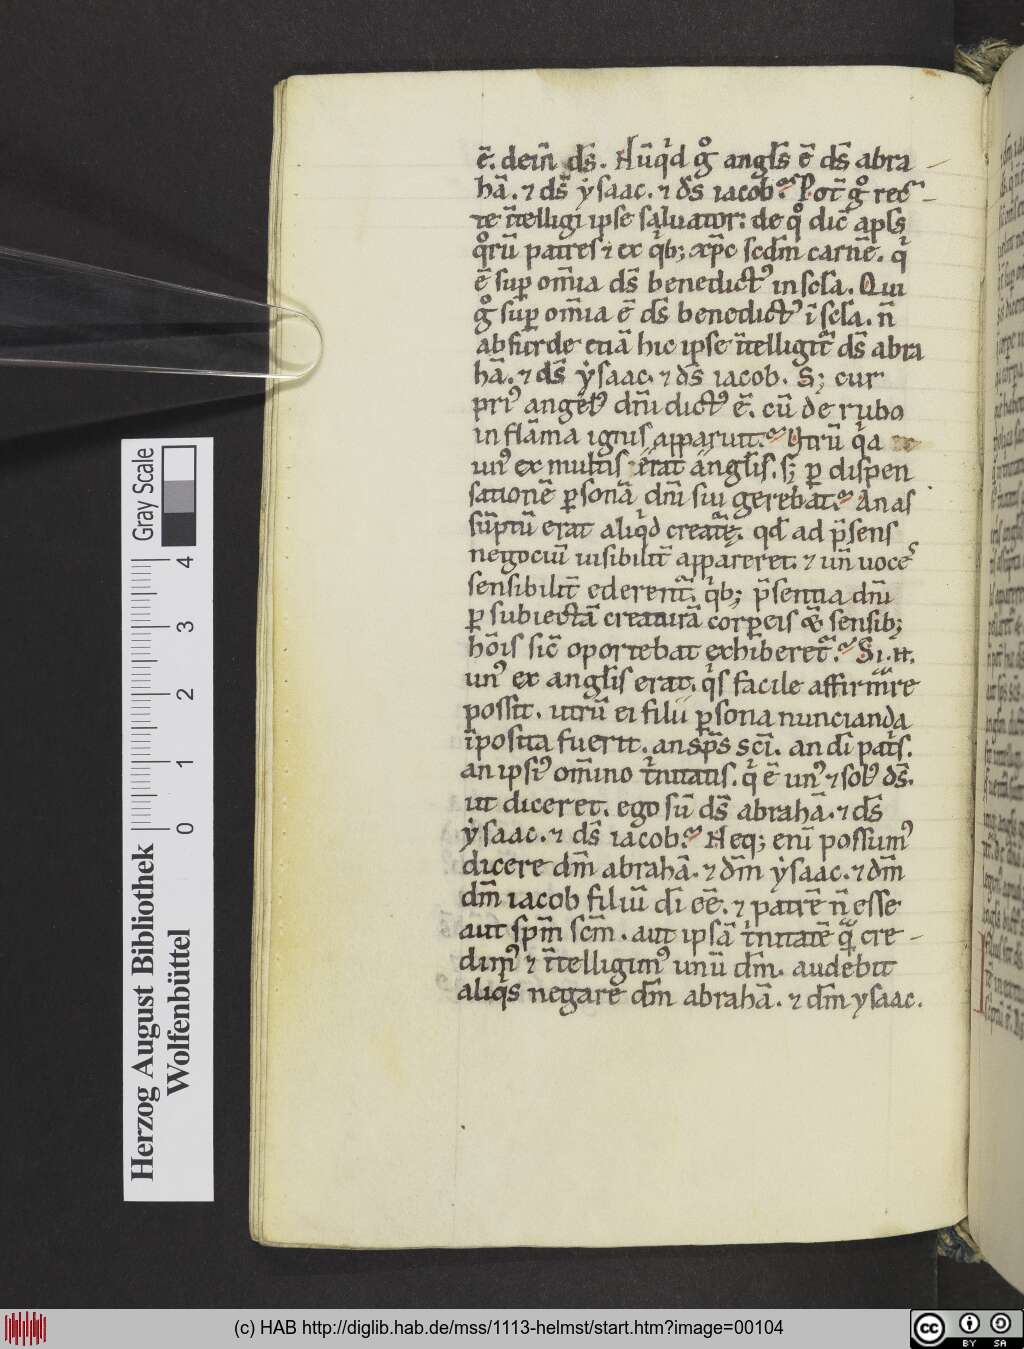 ē. dein̄ ds̄. Nūq̇d g̊ angl̄s ē ds̄ abra
hā. ⁊ ds̄ ẏsaac. ⁊ ds̄ iacob. Pot̄ g̊ rec
te īntelligi ipse saluator: de q̊ dic̄ apl̄s
q̊rū patres ⁊ ex q̇b; xp̄c scd̄m carnē. q̇
ē sup om̄ia ds̄ benedictꝰ in scl̄a. Qui
g̊ sup̄ om̄ia ē ds̄ benedictꝰ ī scl̄a. n̄
absurde etiā hic ipse īntelligit̄ ds̄ abra
hā. ⁊ ds̄ ẏsaac. ⁊ ds̄ iacob. S; cur
priꝰ angelꝰ dn̄i dictꝰ ē. cū de rubo
in flāma ignis apparuit. Vtrū q̇a
unꝰ ex multis erat anglis. s; ꝑ dispen
sationē ꝑsonā dn̄i sui gerebat. An as
sūptū erat aliq̇d creatē. qd̄ ad p̄sens
negociū uisibilit̄ appareret. ⁊ un̄ uoces
sensibilit̄ ederent̄. q̇b; p̄sentia dn̄i
ꝑ subiectā creaturā corꝑeis & sensib;
hōis sic̄ oportebat exhiberet̄. Si .n.
unꝰ ex anglis erat. q̇s facile affirmare
possit. utrū ei filii ꝑsona nuncianda
īposita fuerit. an sp̄s sc̄i. an di pat̄s.
an ipsiꝰ om̄ino ṫnitatis. q̇ ē unꝰ ⁊ solꝰ ds̄.
ut diceret. ego sū ds̄ abrahā. ⁊ ds̄
ẏsaac. ⁊ ds̄ iacob. Neq; eni possumꝰ
dicere dm̄ abrahā. ⁊ dm̄ ẏsaac. ⁊ dm̄
dm̄ iacob filiū di eē. ⁊ patrē n̄ esse
aut spm̄ scm̄. aut ipsā ṫnitatē q̄ cre
dimꝰ ⁊ īntelligimꝰ unū dm̄. audebit
aliq̇s negare dm̄ abrahā. ⁊ dm̄ ysaac.
Gray Scale
0 1 2 3 4
Herzog August Bibliothek
Wolfenbüttel
(c) HAB http://diglib.hab.de/mss/1113-helmst/start.htm?image=00104
cc BY SA